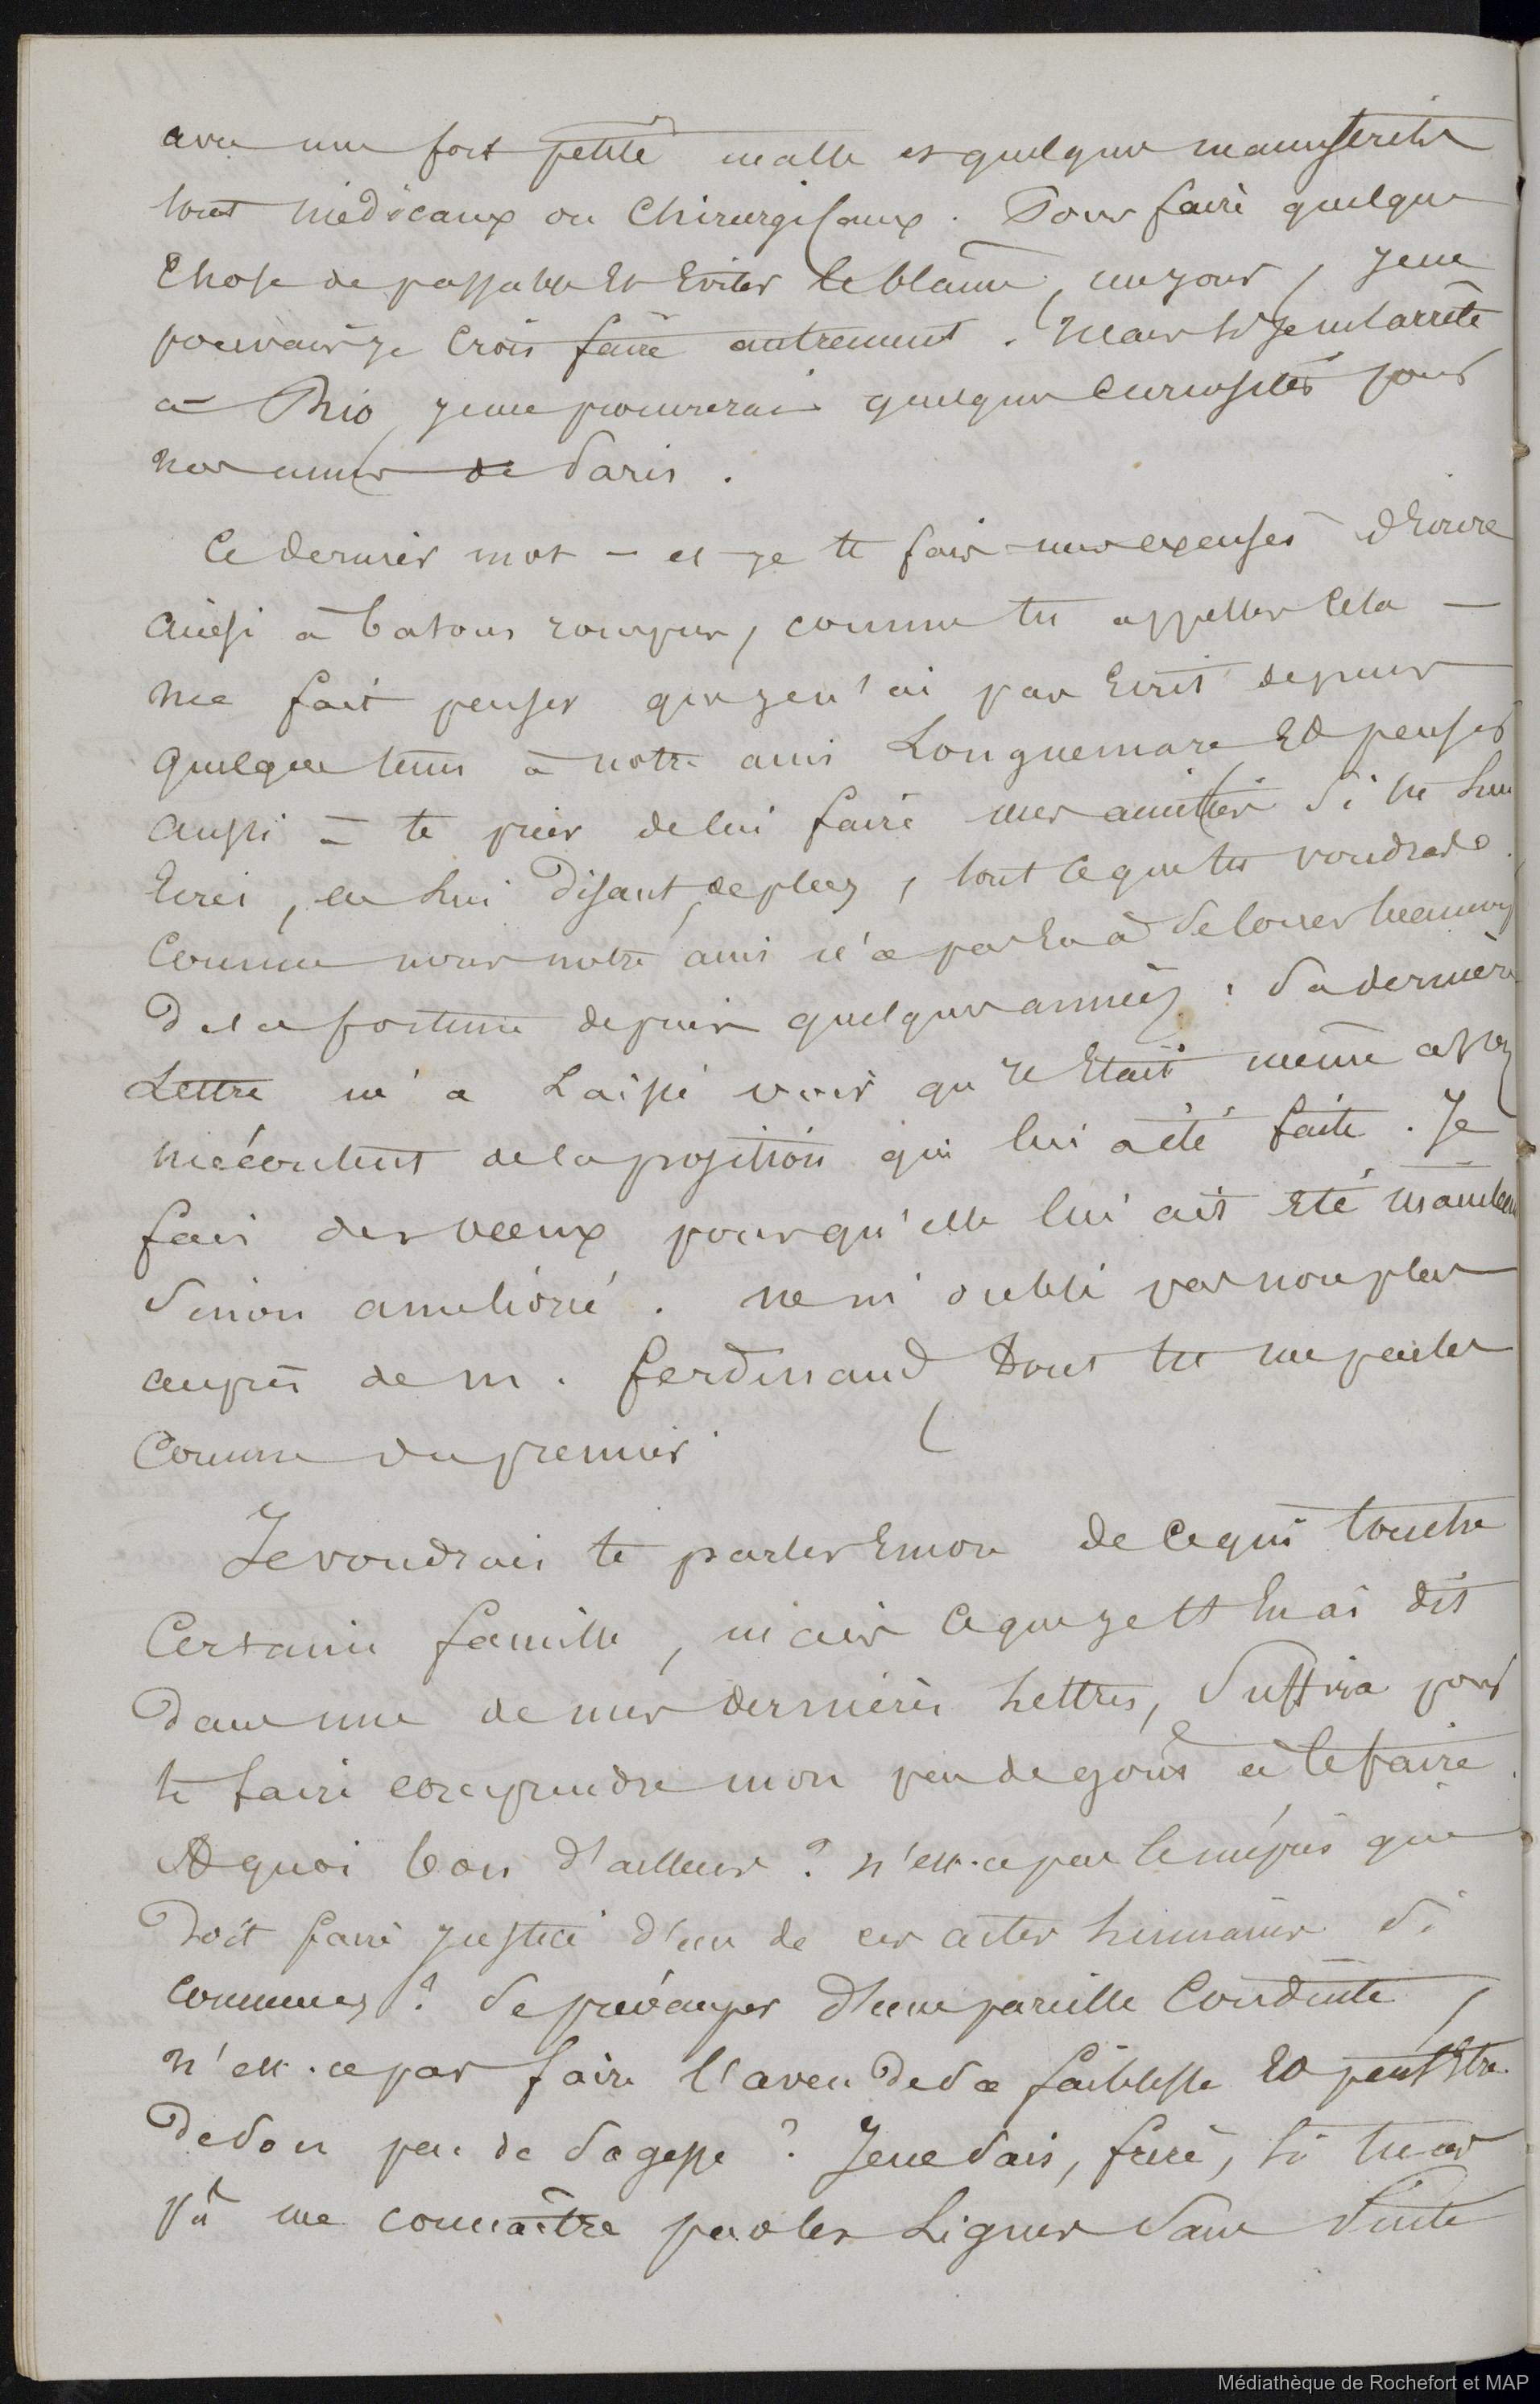 avec une fort petite malle et quelques manuscrits
tous médicaux ou chirurgicaux. Pour faire quelque
chose de passable et eviter le blâme, un jour, je ne
pouvais je crois faire autrement. Mais si je m'arrête
à Rio, je me procurerai quelques curiosités pour
nos amis de Paris.
Ce dernier mot – et je te fais mes excuses d'écrire
ainsi à batons rompus, comme tu appelles cela –
me fait penser que je n'ai pas ecrit depuis
quelque tems à notre ami Longuemare et penser
aussi à te prier de lui faire mes amitiés si tu lui
ecris, en lui disant de plus, tout ce que tu voudras.
Comme nous notre ami n'a pas eu à se louer beaucoup
de la fortune depuis quelques années : sa dernière
lettre m'a laissé voir qu'il était même assez
mécontent de la position qui lui a été faite. Je
fais des vœux pour qu'elle lui ait été maintenue
sinon améliorée. ne m'oublie pas non plus
auprès de m. ferdinand dont tu me parles
comme du premier.
Je voudrais te parler encore de ce qui touche
certaine famille, mais ce que je t'en ai dit
dans une de mes dernières lettres, suffira pour
te faire comprendre mon peu de goût à le faire.
A quoi bon d'ailleurs ? n'est-ce pas le mépris qui
doit faire justice d'un de ces actes humains si
communs ? Se préoccuper d'une pareille conduite,
n'est-ce pas faire l'aveu de sa faiblesse et peut être
de son peu de sagesse ? Je ne sais, frère, si tu as
pû me connaître par les lignes sans suite
Médiathèque de Rochefort et MAP